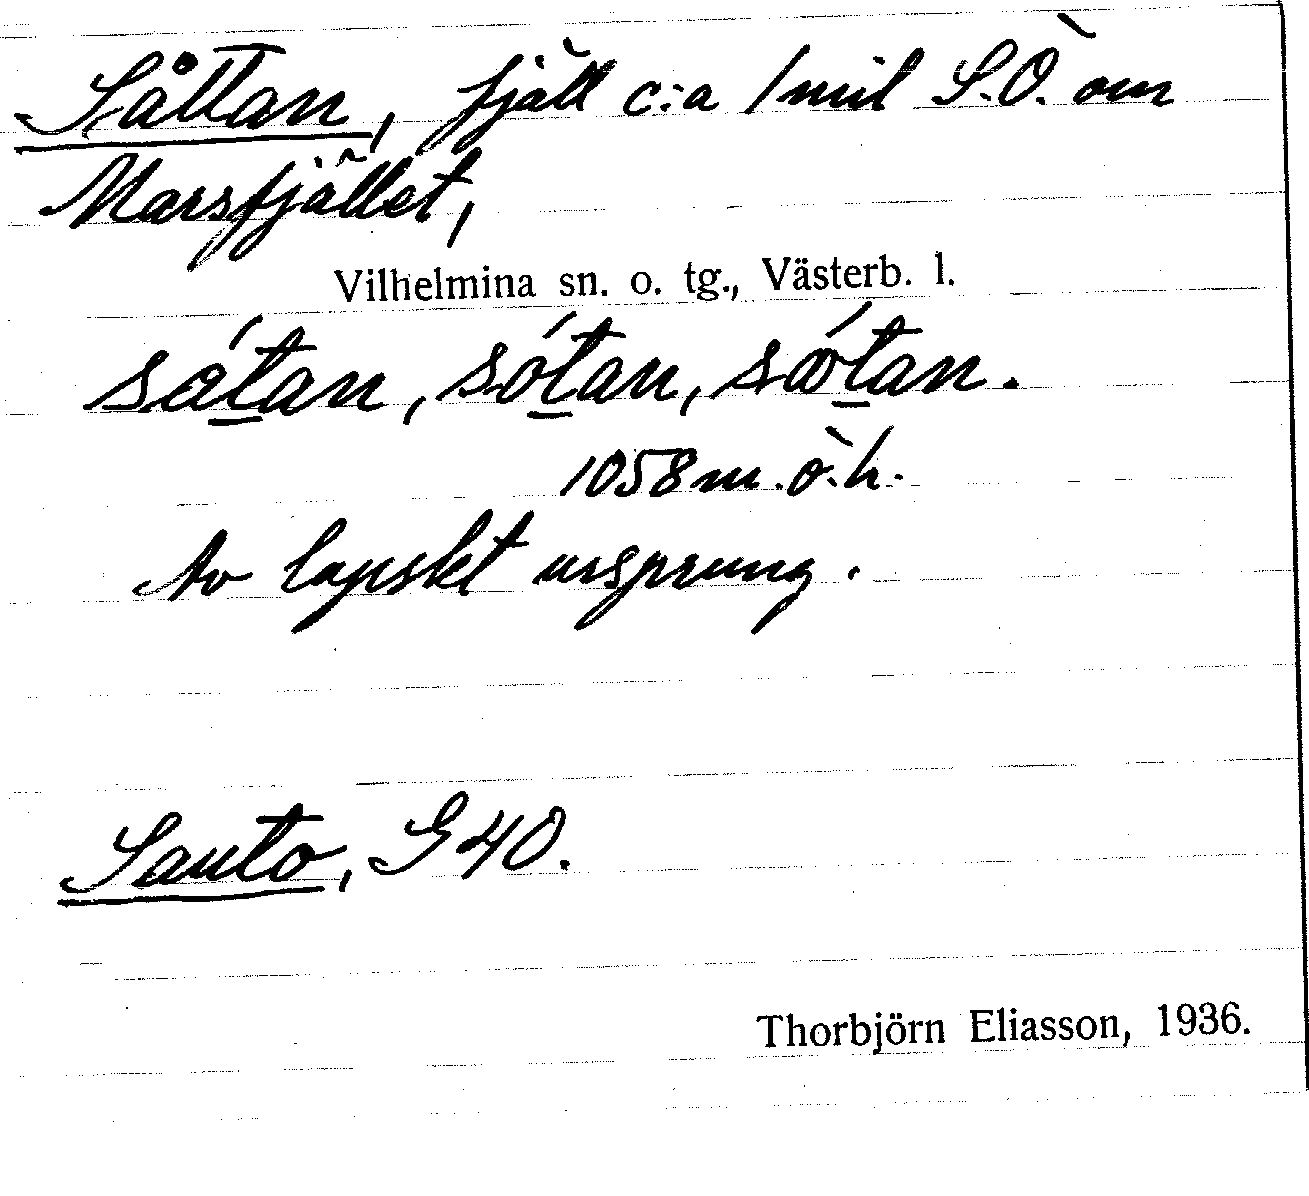 Såttan, fjäll c:a 1 mil S.Ö. om
Marsfjället,
Vilhelmina sn. o. tg., Västerb. l.
sátan, sótan, sǿtan.
1058 m. ö. h.
Av lapskt ursprung.
Sauto, G40.
Thorbjörn Eliasson, 1936.